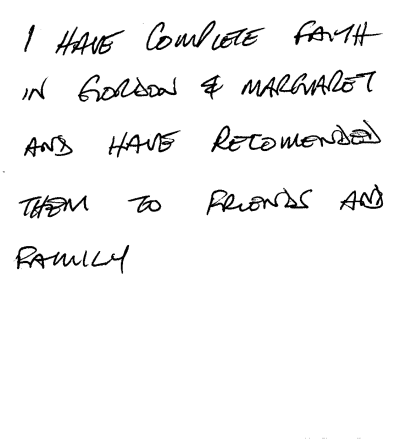 I HAVE COMPLETE FAITH
IN GORDON & MARGARET
AND HAVE RECOMENDED
THEM TO FRIENDS AND
FAMILY